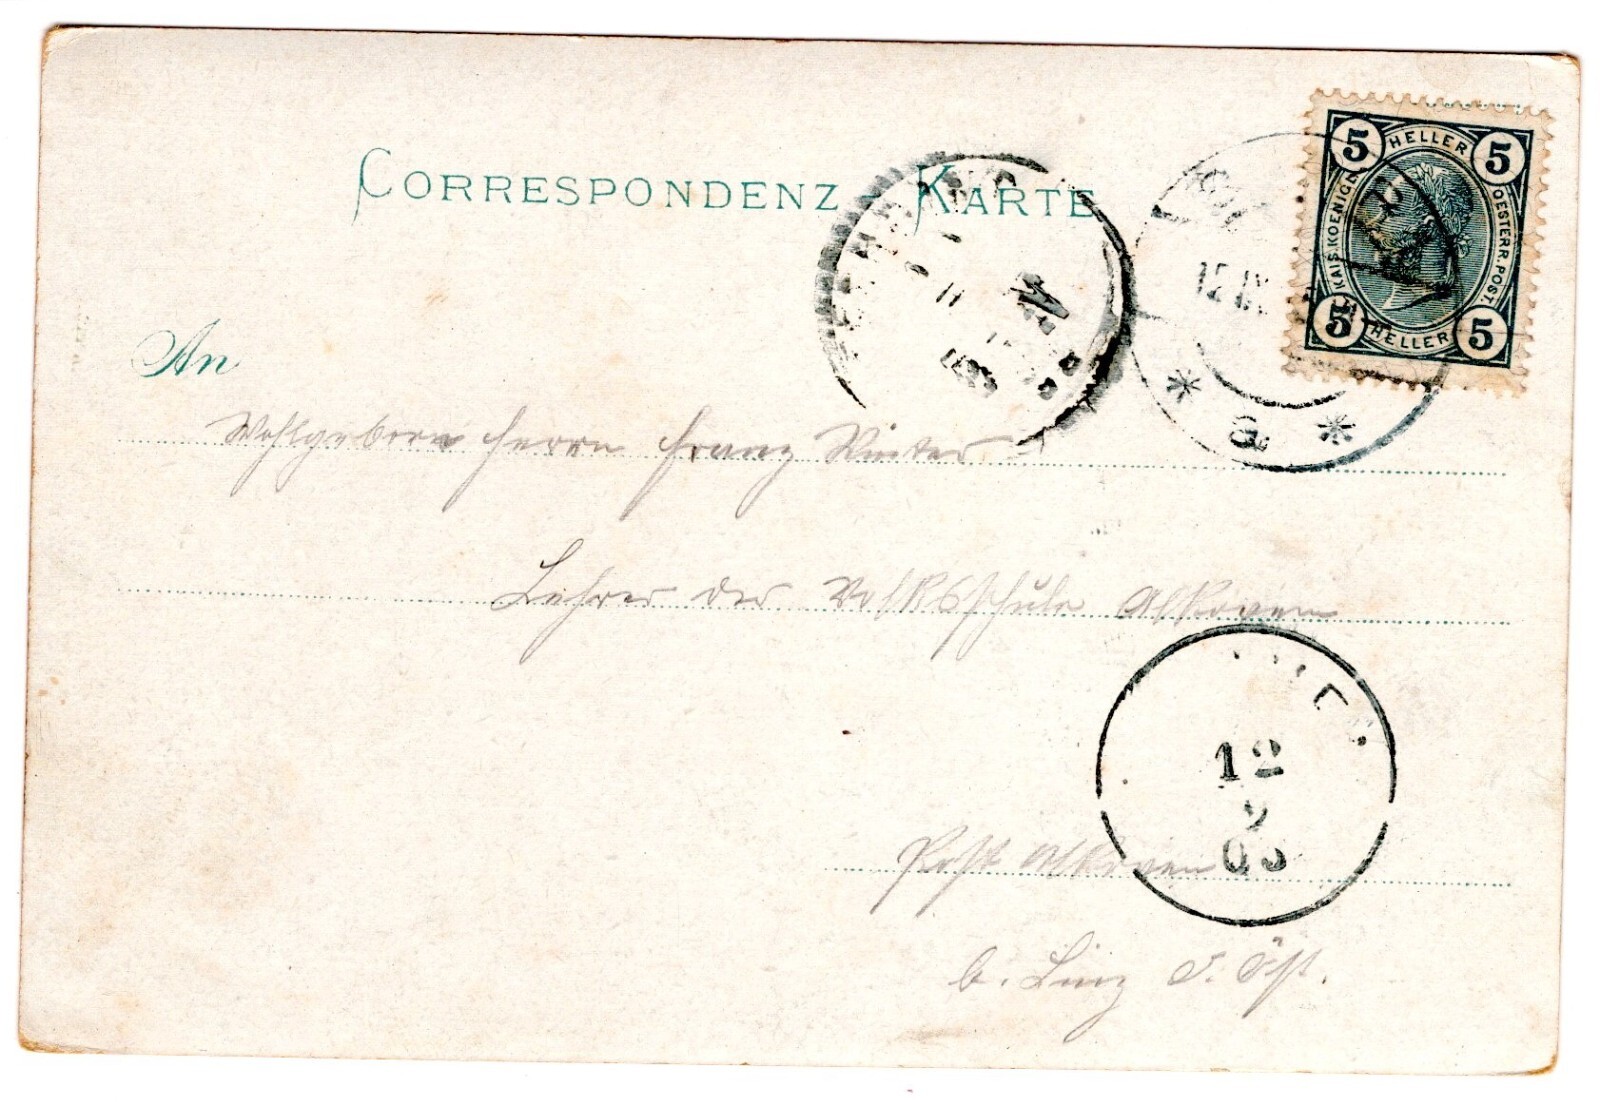 CORRESPONDENZ - KARTE
5 HELLER 5
KAIS. KOENIGL. OESTERR. POST.
5 HELLER 5
12 IX
* G *
An
Wohlgeboren Herrn Franz Winter
Lehrer der Volksschule Alkoven
12
9
03
Post Alkoven
b. Linz O. Öst.